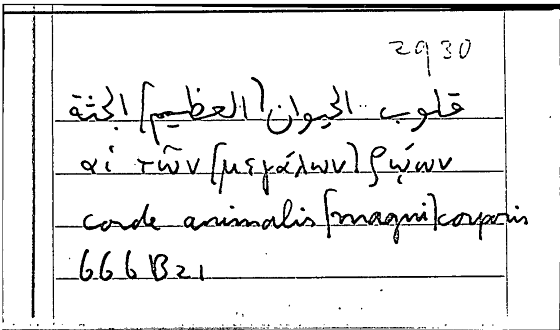 2930
قلوب الحيوان [العظيم] الجثة
αἱ τῶν [μεγάλων] ζῴων
corde animalis [magni] corporis
666 B21